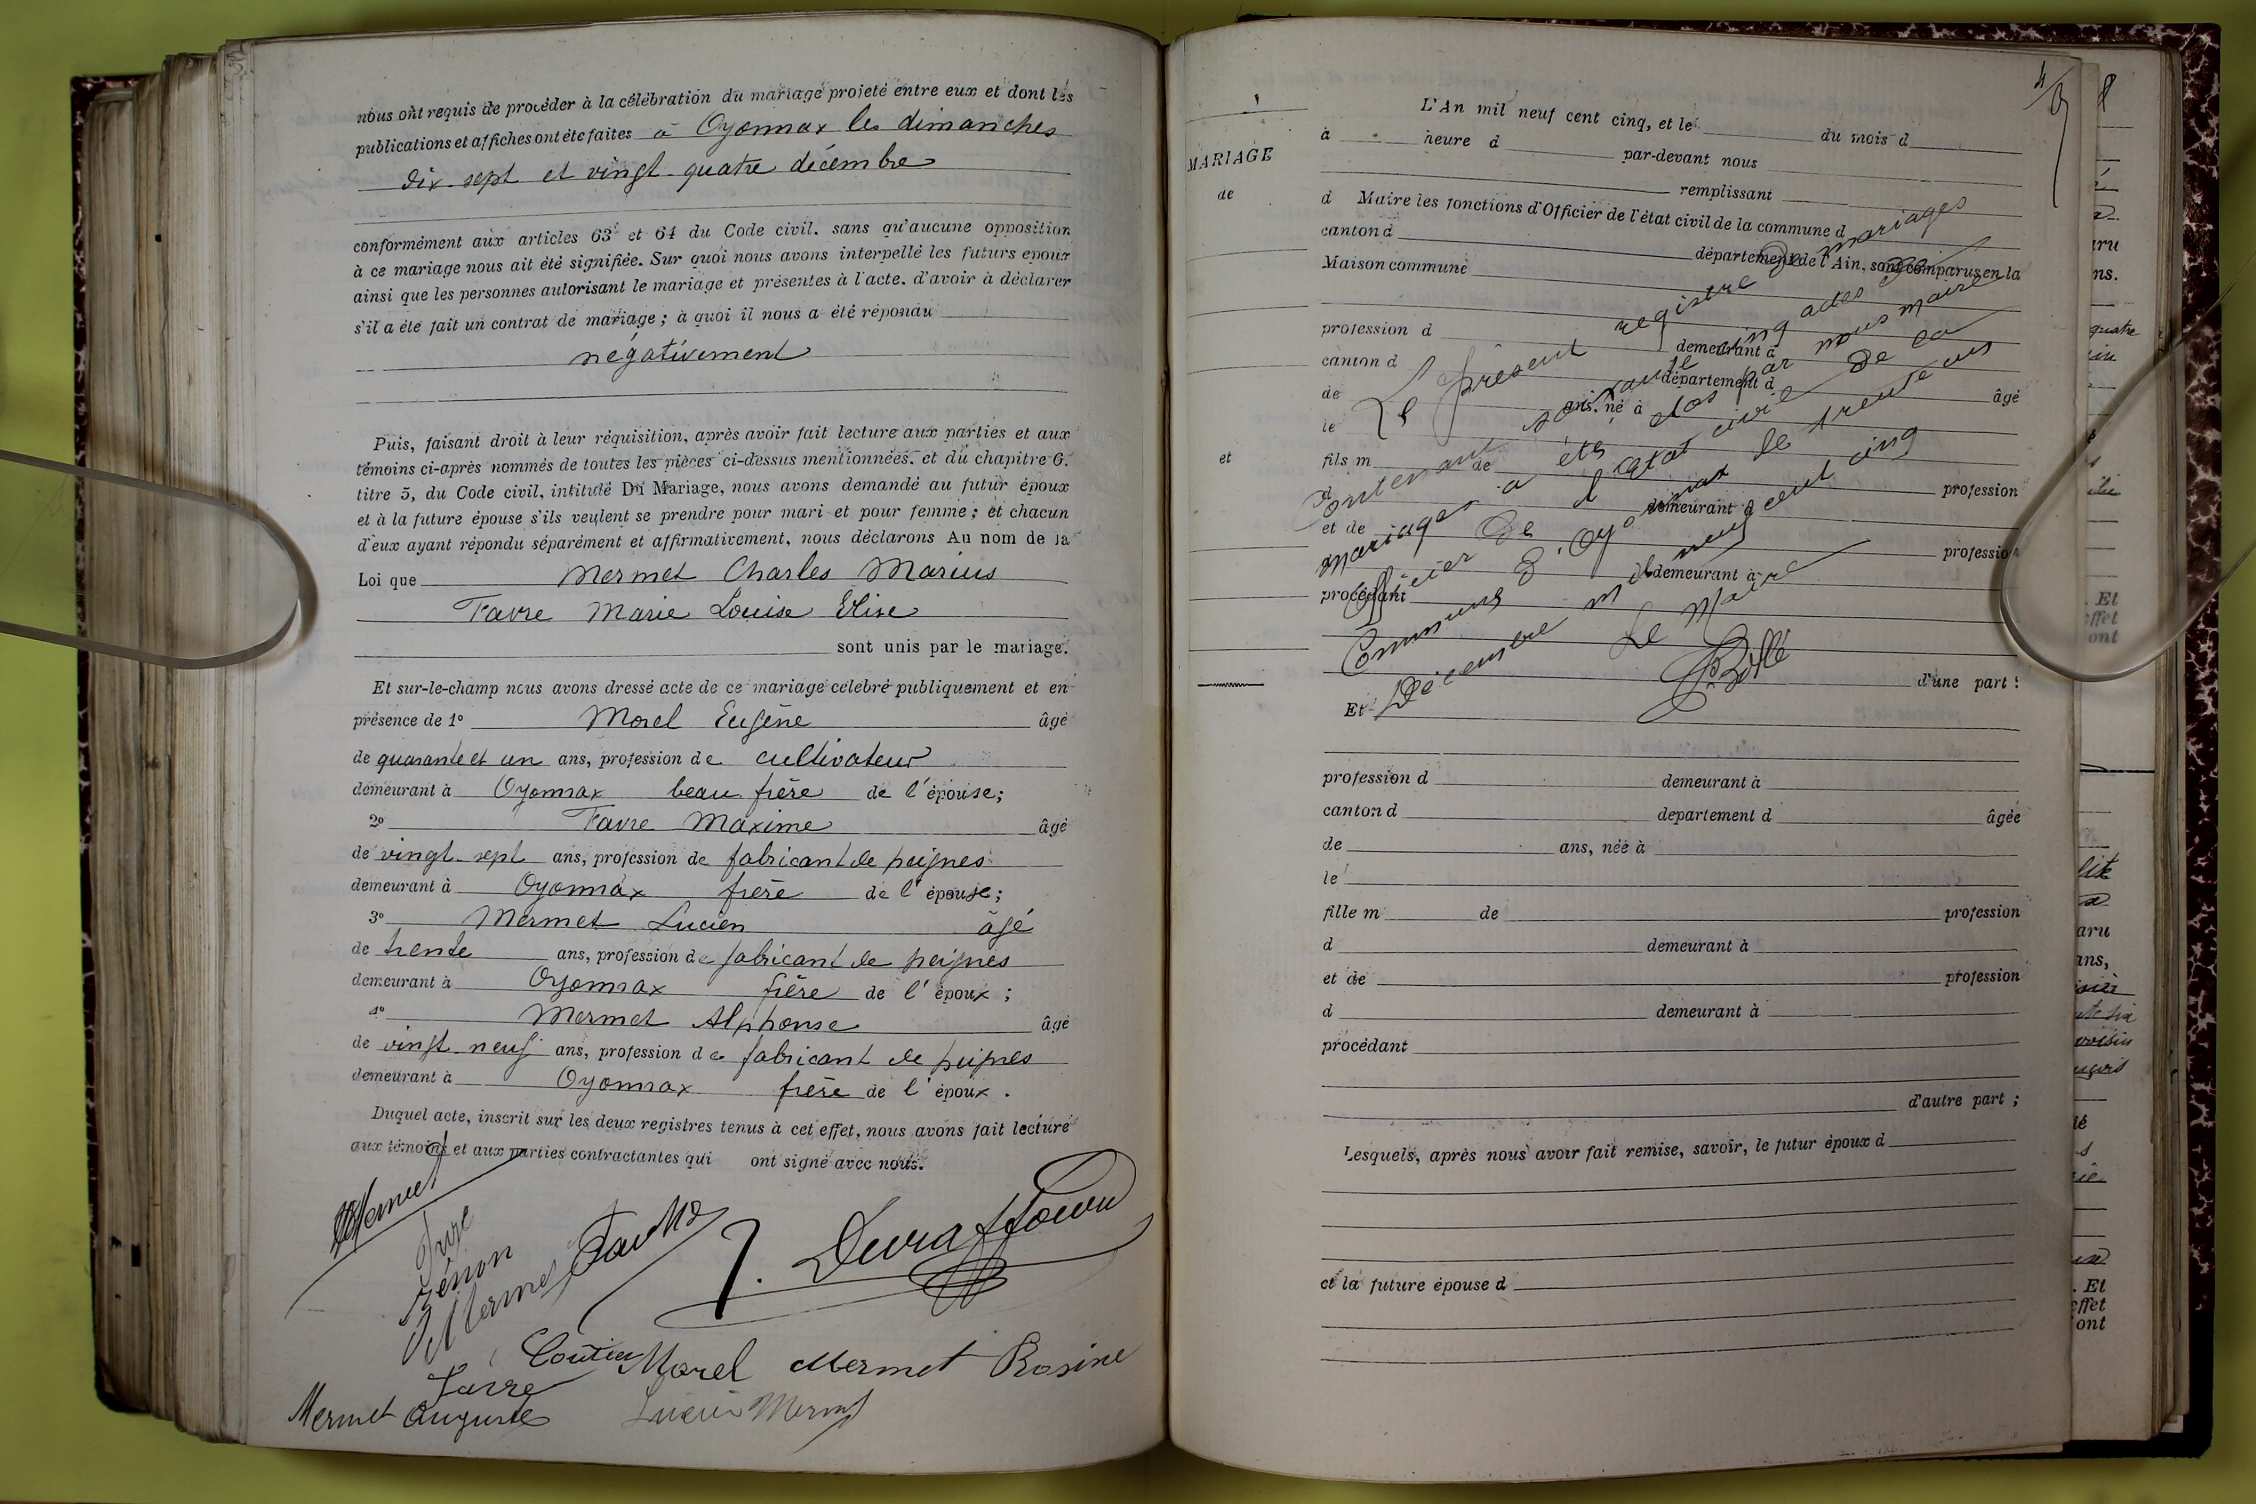 nous ont requis de procéder à la célébration du mariage projeté entre eux et dont les
publications et affiches ont été faites à Oyonnax les dimanches
dix-sept et vingt-quatre décembre
conformément aux articles 63 et 64 du Code civil. sans qu'aucune opposition
à ce mariage nous ait été signifiée. Sur quoi nous avons interpellé les futurs époux
ainsi que les personnes autorisant le mariage et présentes à l'acte. d'avoir à déclarer
s'il a été fait un contrat de mariage ; à quoi il nous a été répondu
négativement
Puis, faisant droit à leur réquisition, après avoir fait lecture aux parties et aux
témoins ci-après nommés de toutes les pièces ci-dessus mentionnées. et du chapitre 6.
titre 5, du Code civil, intitulé Du Mariage, nous avons demandé au futur époux
et à la future épouse s'ils veulent se prendre pour mari et pour femme ; et chacun
d'eux ayant répondu séparément et affirmativement, nous déclarons Au nom de la
Loi que Mermet Charles Marius
Favre Marie Louise Elise
sont unis par le mariage.
Et sur-le-champ nous avons dressé acte de ce mariage célébré publiquement et en
présence de 1º Morel Eugène âgé
de quarante et un ans, profession de cultivateur
demeurant à Oyonnax beau frère de l'épouse;
2º Favre Maxime âgé
de vingt-sept ans, profession de fabricant de peignes
demeurant à Oyonnax frère de l'épouse;
3º Mermet Lucien âgé
de trente ans, profession de fabricant de peignes
demeurant à Oyonnax frère de l'époux ;
4º Mermet Alphonse âgé
de vingt-neuf ans, profession de fabricant de peignes
demeurant à Oyonnax frère de l'époux .
Duquel acte, inscrit sur les deux registres tenus à cet effet, nous avons fait lecture
aux témoins et aux parties contractantes qui ont signé avec nous.
Mermet
Zénon
Mermet
J. Duraffourd
Coutier Morel Mermet Rosine
Favre
Mermet Auguste Lucien Mermet
MARIAGE
de
et
L'An mil neuf cent cinq, et le du mois d
à heure d par-devant nous
remplissant
d Maire les fonctions d'Officier de l'état civil de la commune d
canton d département de l'Ain, sont comparus en la
Maison commune
profession d demeurant à
canton d département d
de ans, né à âgé
le
fils m de
d profession
et de demeurant à
profession
demeurant à
procédant
d'une part ;
Et
Le présent registre de mariages
contenant soixante cinq actes de
mariages a été clos par nous maire
officier de l'état civil de la
Commune d'Oyonnax le trente un
Décembre mil neuf cent cinq
Le Maire
profession d demeurant à
canton d département d âgée
de ans, née à
le
fille m de profession
d demeurant à
et de profession
d demeurant à
procédant
d'autre part ;
Lesquels, après nous avoir fait remise, savoir, le futur époux d
et la future épouse d
aru
ns.
quatre
. Et
effet
ont
aru
ans,
. Et
effet
ont